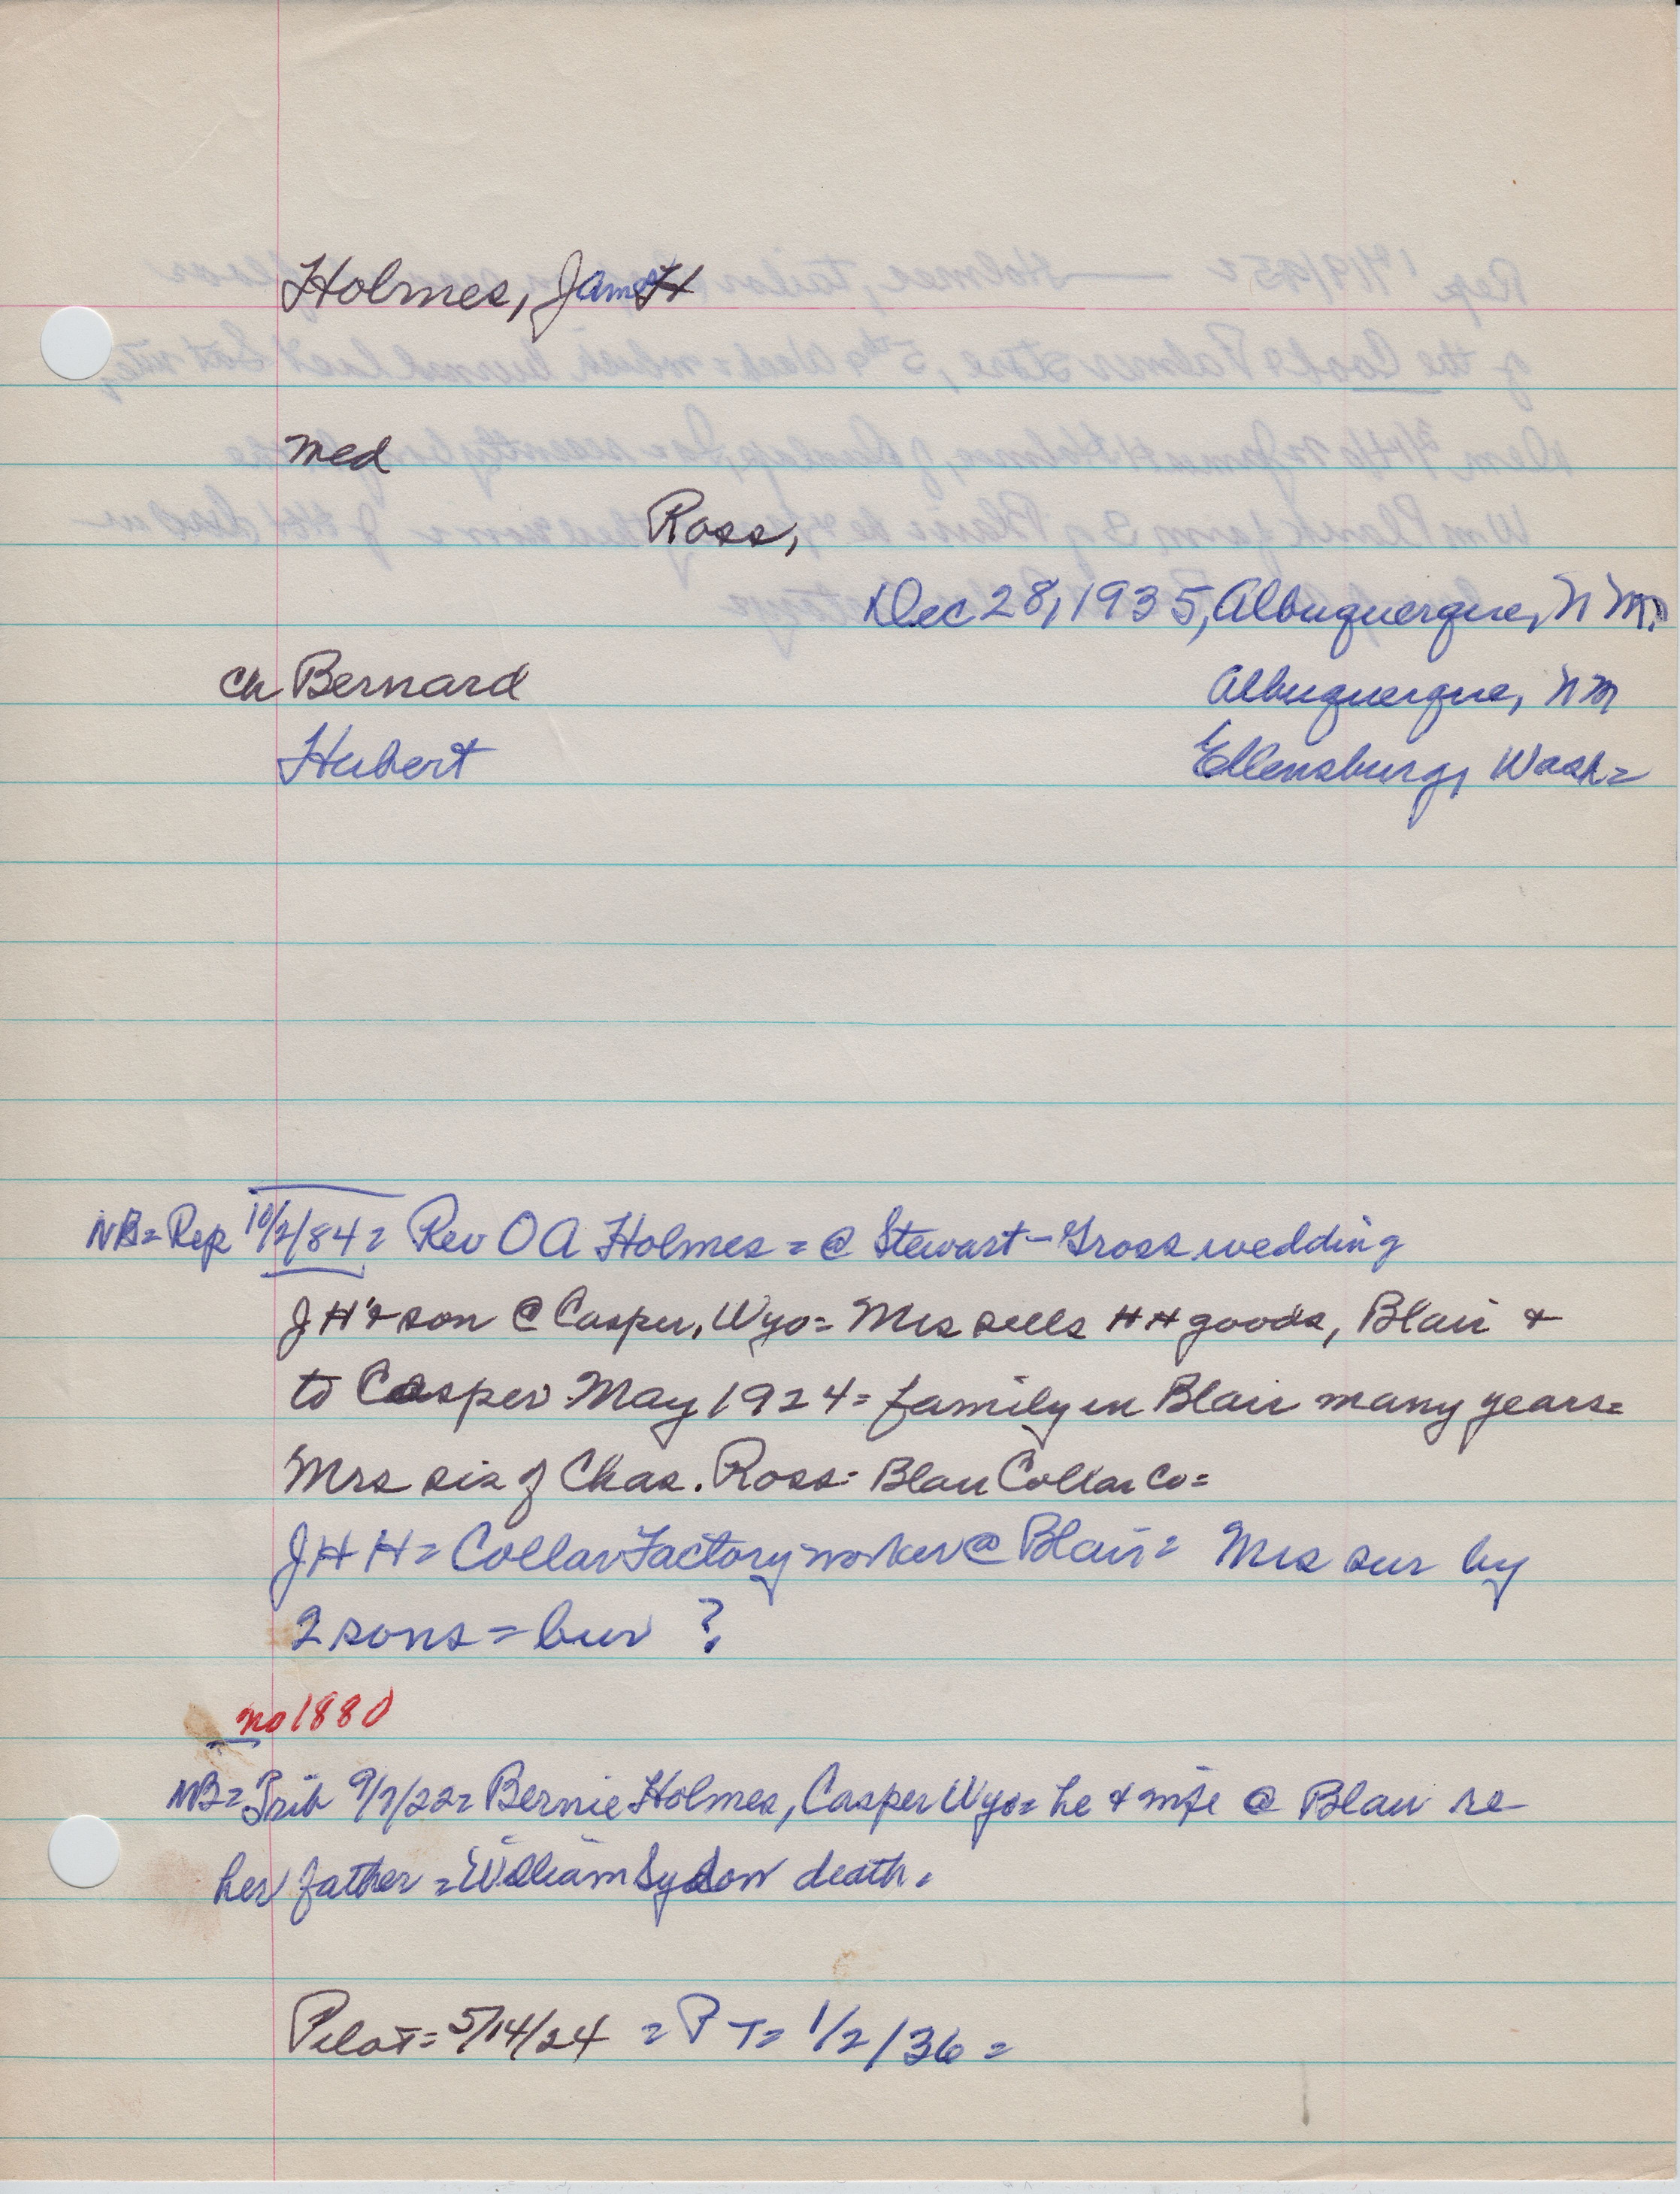 Holmes, James H
med
Ross,
Dec 28, 1935, Albuquerque, N M.
ch Bernard Albuquerque, NM
Hubert Ellensburg, Wash=
NB= Rep 10/2/84= Rev O A Holmes = @ Stewart-Gross wedding
J H & son @ Casper, Wyo= Mrs sells HH goods, Blair &
to Casper May 1924= family in Blair many years=
Mrs sis of Chas. Ross= Blair Collar Co=
J H H = Collar Factory worker @ Blair= Mrs sur by
2 sons = bur ?
no 1880
NB= Trib 9/7/22= Bernie Holmes, Casper Wyo= he & wife @ Blair re
her father = William death.
Pilot= 5/14/24 = P T= 1/2/36 =